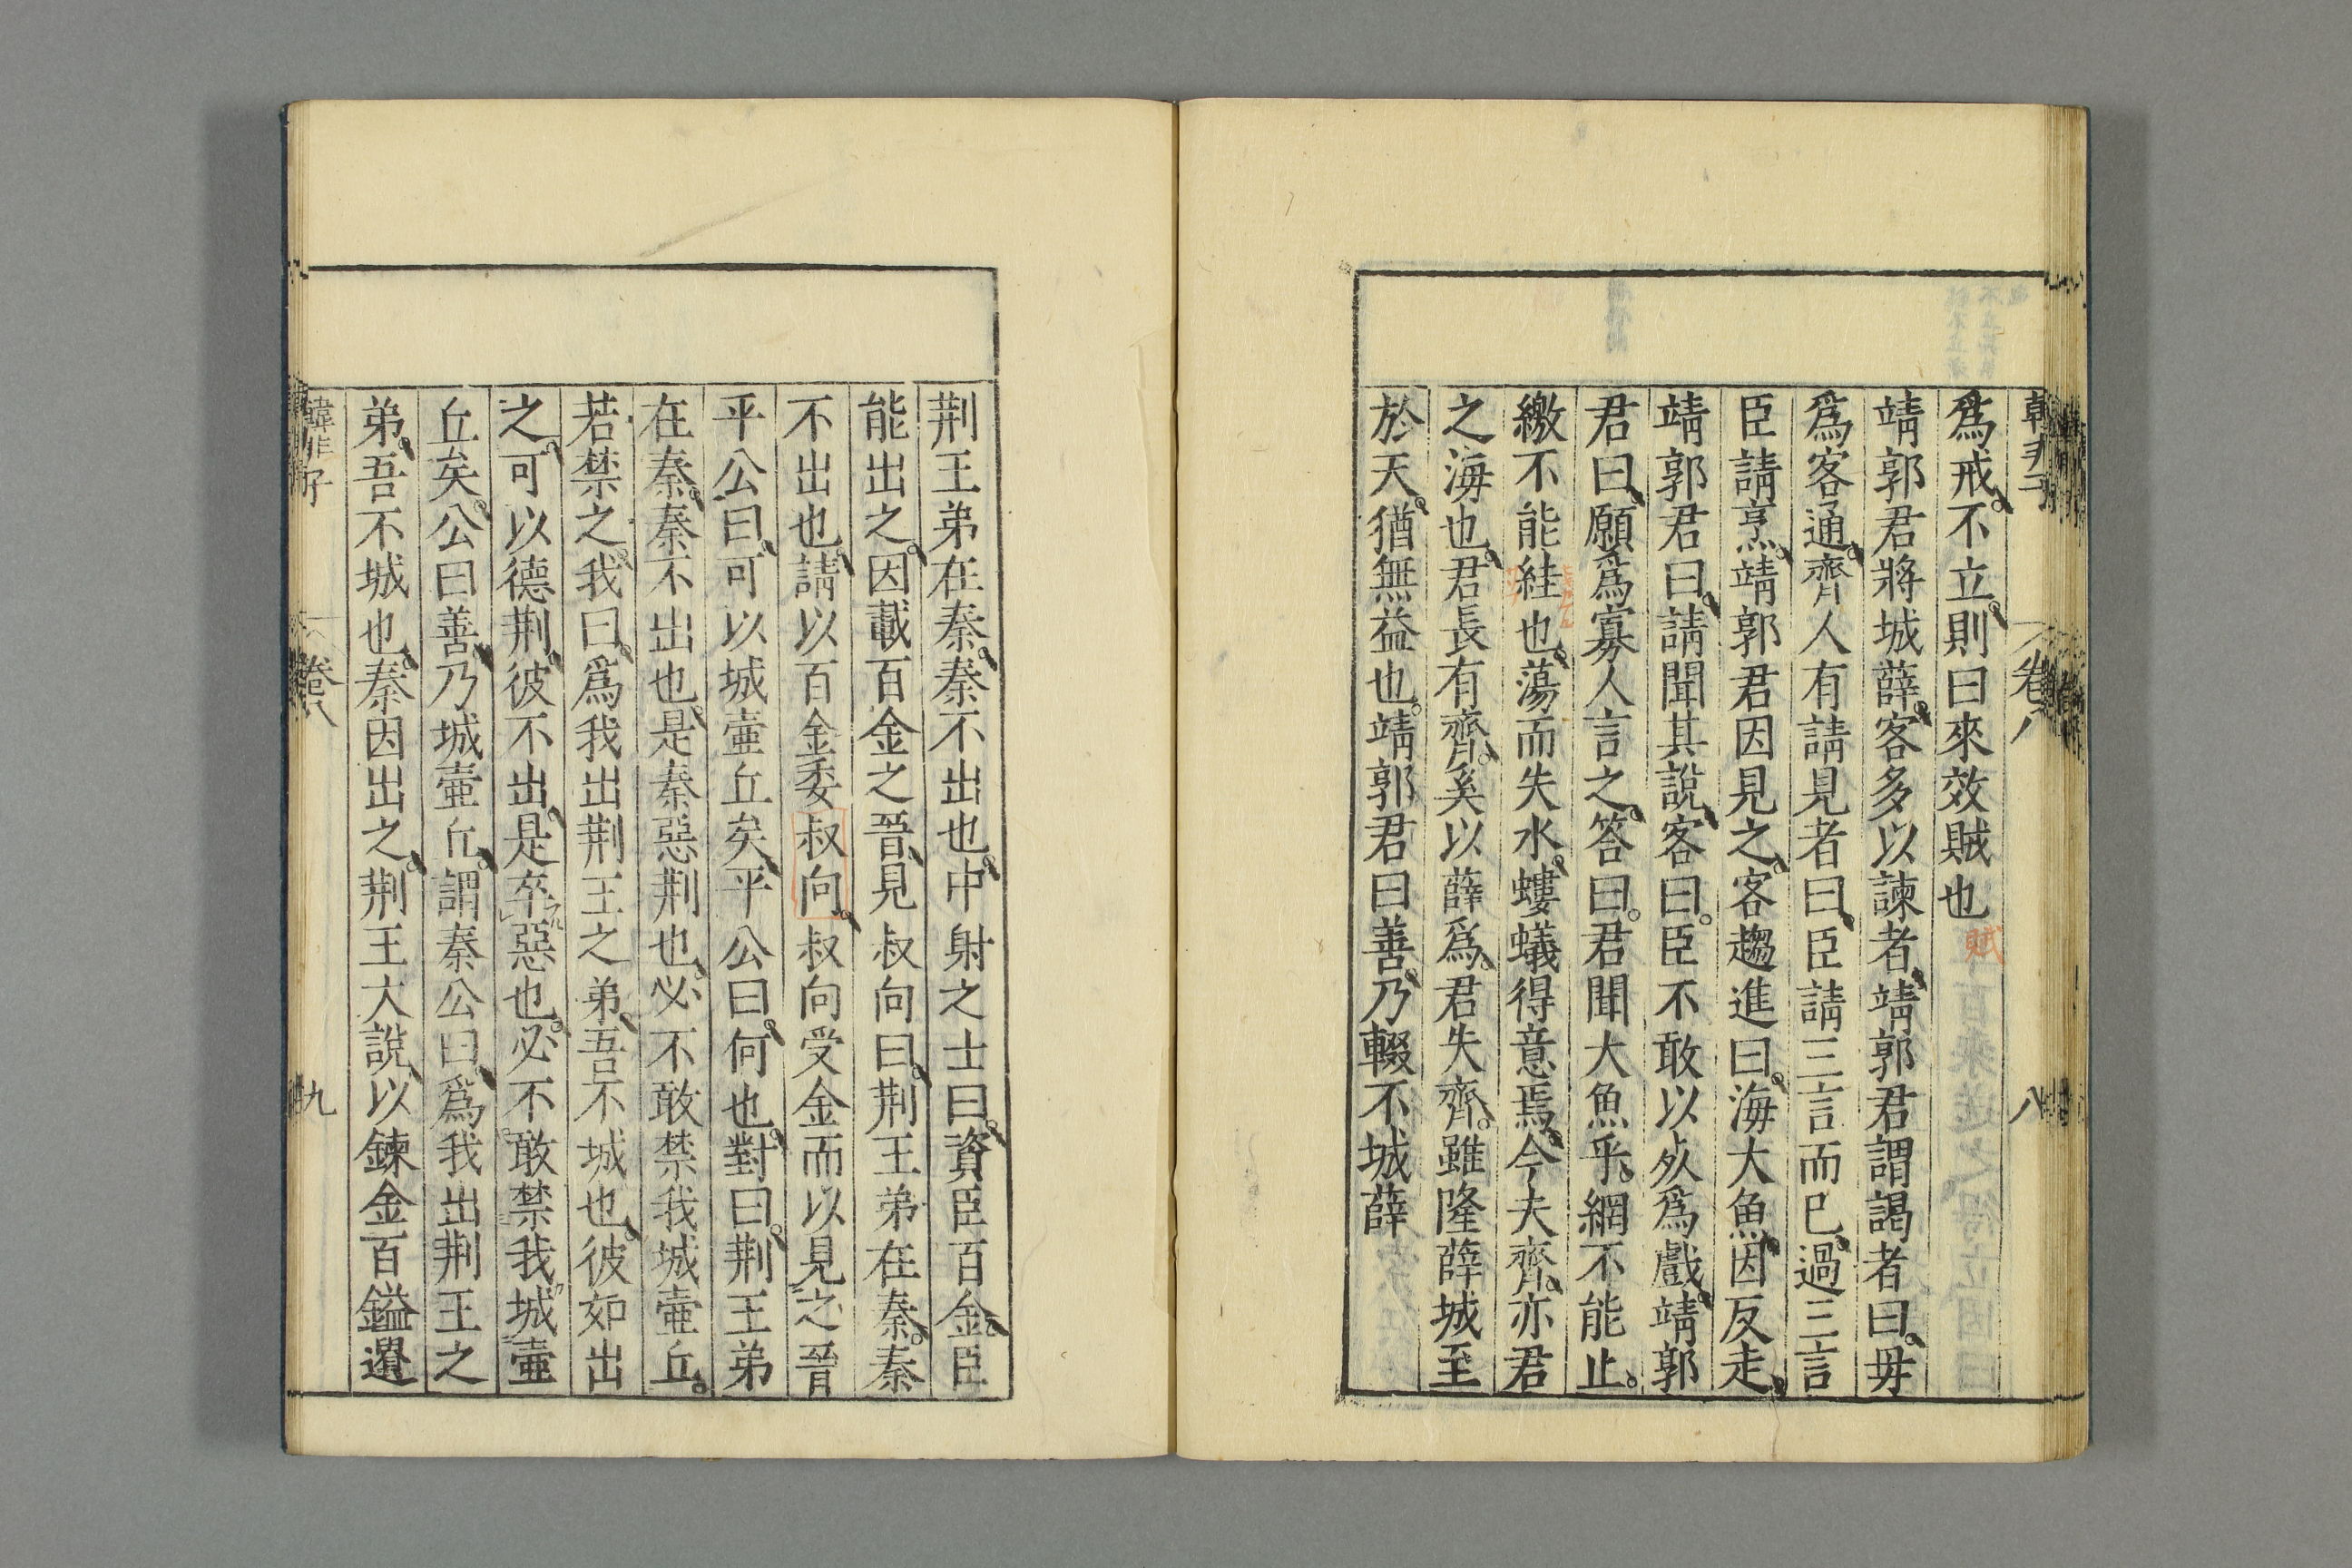 爲戒。不立。則曰來效賊也
靖郭君將城薛。客多以諫者。靖郭君謂謁者曰。毋
爲客通。齊人有請見者曰。臣請三言而已。過三言
臣請烹。靖郭君因見之。客趨進曰。海大魚。因反走。
靖郭君曰。請聞其說。客曰。臣不敢以死爲戲。靖郭
君曰。願爲寡人言之。答曰。君聞大魚乎。網不能止。
繳不能絓也。蕩而失水。螻蟻得意焉。今夫齊。亦君
之海也。君長有齊。奚以薛爲。君失齊。雖隆薛城至
於天。猶無益也。靖郭君曰善。乃輟不城薛
卷八
八
荆王弟在秦。秦不出也。中射之士曰。資臣百金。臣
能出之。因載百金之晉。見叔向曰。荆王弟在秦。秦
不出也。請以百金委叔向。叔向受金而以見之晉
平公曰。可以城壷丘矣。平公曰。何也。對曰。荆王弟
在秦。秦不出也。是秦惡荆也。必不敢禁我城壷丘。
若禁之。我曰。爲我出荆王之弟。吾不城也。彼如出
之。可以德荆。彼不出。是卒惡也。必不敢禁我城壷
丘矣。公曰善。乃城壷丘。謂秦公曰。爲我出荆王之
弟。吾不城也。秦因出之。荆王大說。以鍊金百鎰遺
韓非子
卷八
九